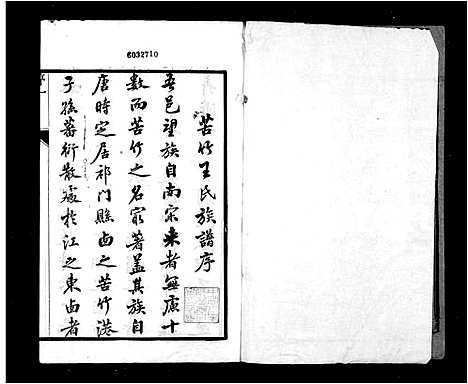 6032710
苦竹王氏族譜序
吾邑望族自南宋来者無慮十
數而苦竹之名最著盖其族自
唐時定居祁门縣卤之苦竹港
子孫蕃衍散處扵江之東卤者